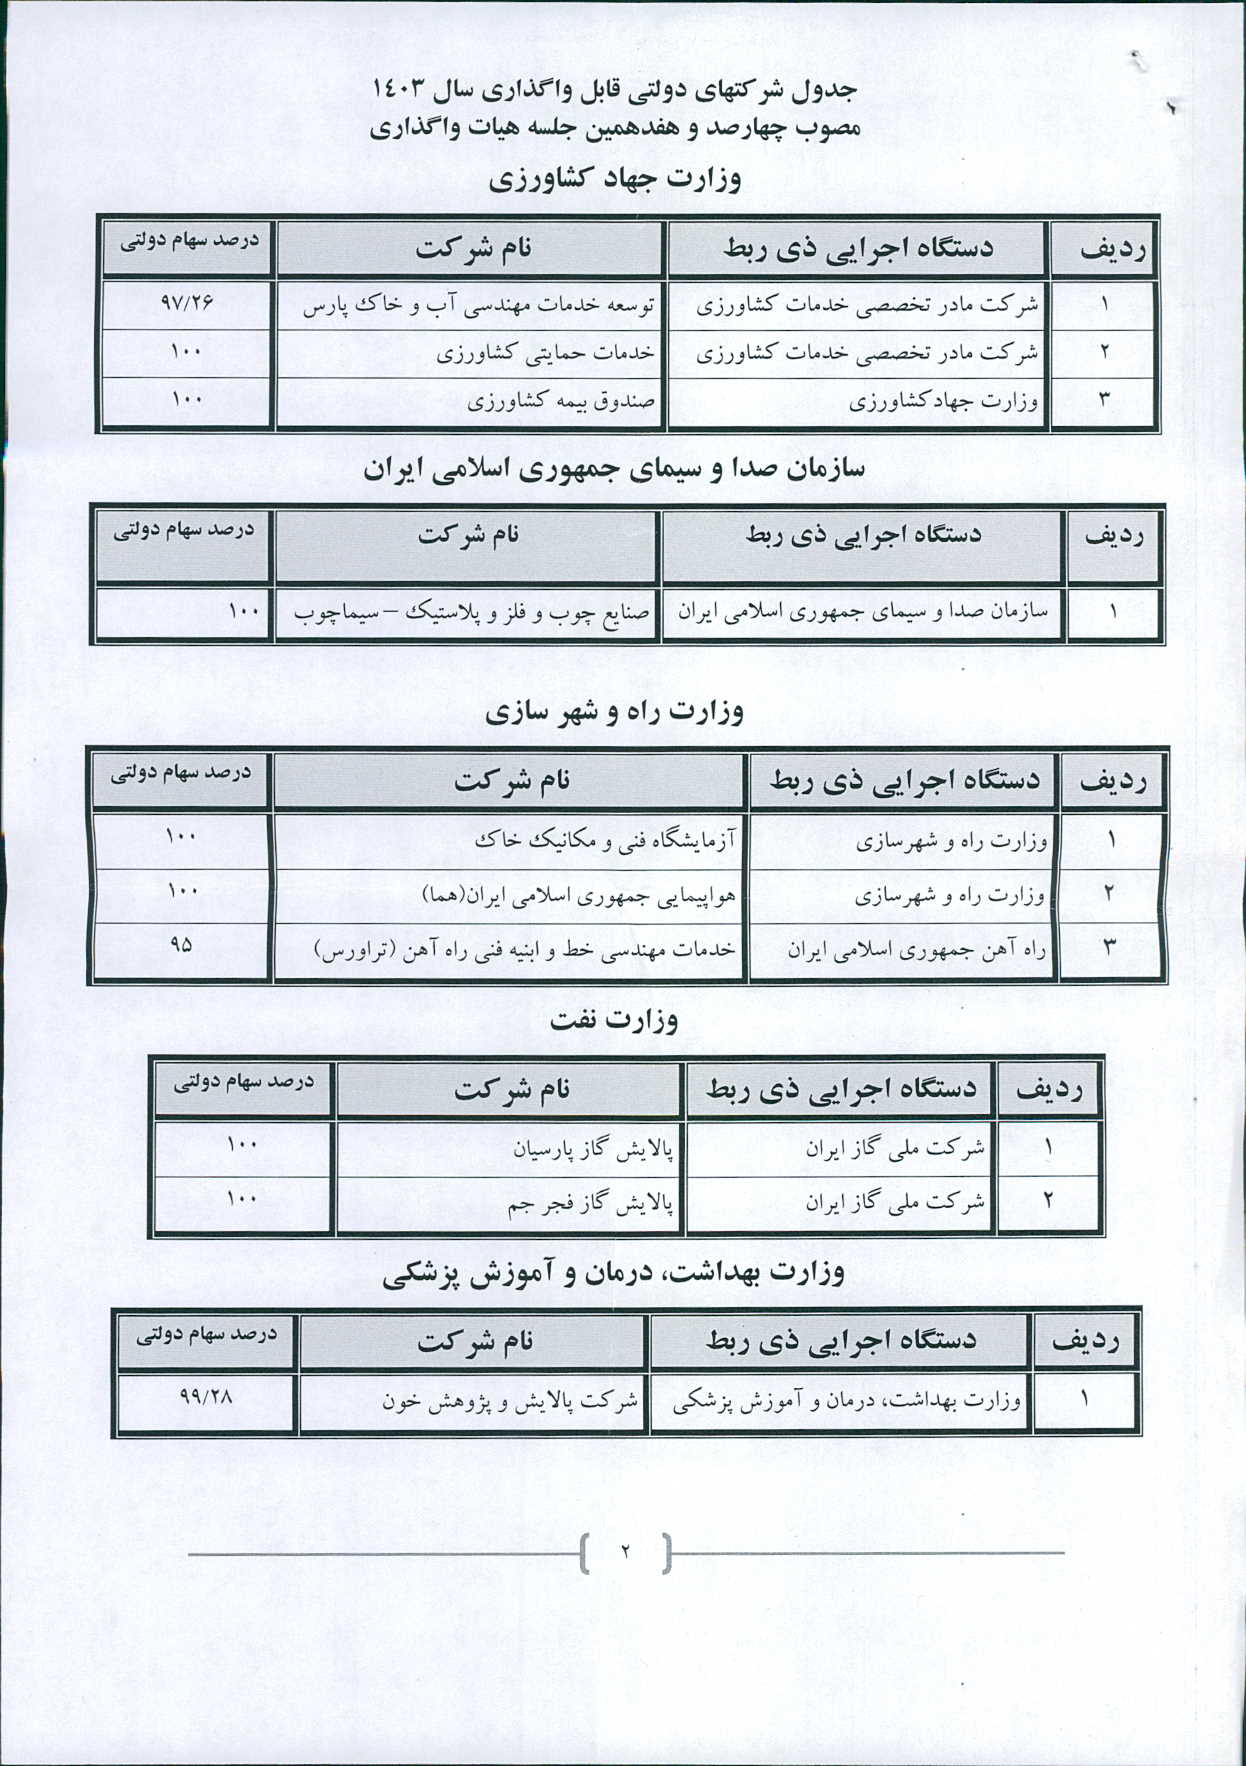 جدول شرکتهای دولتی قابل واگذاری سال ۱۴۰۳
مصوب چهارصد و هفدهمین جلسه هیات واگذاری
وزارت جهاد کشاورزی
ردیف دستگاه اجرایی ذی ربط نام شرکت درصد سهام دولتی
۱ شرکت مادر تخصصی خدمات کشاورزی توسعه خدمات مهندسی آب و خاک پارس ۹۷/۲۶
۲ شرکت مادر تخصصی خدمات کشاورزی خدمات حمایتی کشاورزی ۱۰۰
۳ وزارت جهادکشاورزی صندوق بیمه کشاورزی ۱۰۰
سازمان صدا و سیمای جمهوری اسلامی ایران
ردیف دستگاه اجرایی ذی ربط نام شرکت درصد سهام دولتی
۱ سازمان صدا و سیمای جمهوری اسلامی ایران صنایع چوب و فلز و پلاستیک – سیماچوب ۱۰۰
وزارت راه و شهر سازی
ردیف دستگاه اجرایی ذی ربط نام شرکت درصد سهام دولتی
۱ وزارت راه و شهرسازی آزمایشگاه فنی و مکانیک خاک ۱۰۰
۲ وزارت راه و شهرسازی هواپیمایی جمهوری اسلامی ایران(هما) ۱۰۰
۳ راه آهن جمهوری اسلامی ایران خدمات مهندسی خط و ابنیه فنی راه آهن (تراورس) ۹۵
وزارت نفت
ردیف دستگاه اجرایی ذی ربط نام شرکت درصد سهام دولتی
۱ شرکت ملی گاز ایران پالایش گاز پارسیان ۱۰۰
۲ شرکت ملی گاز ایران پالایش گاز فجر جم ۱۰۰
وزارت بهداشت، درمان و آموزش پزشکی
ردیف دستگاه اجرایی ذی ربط نام شرکت درصد سهام دولتی
۱ وزارت بهداشت، درمان و آموزش پزشکی شرکت پالایش و پژوهش خون ۹۹/۲۸
۲